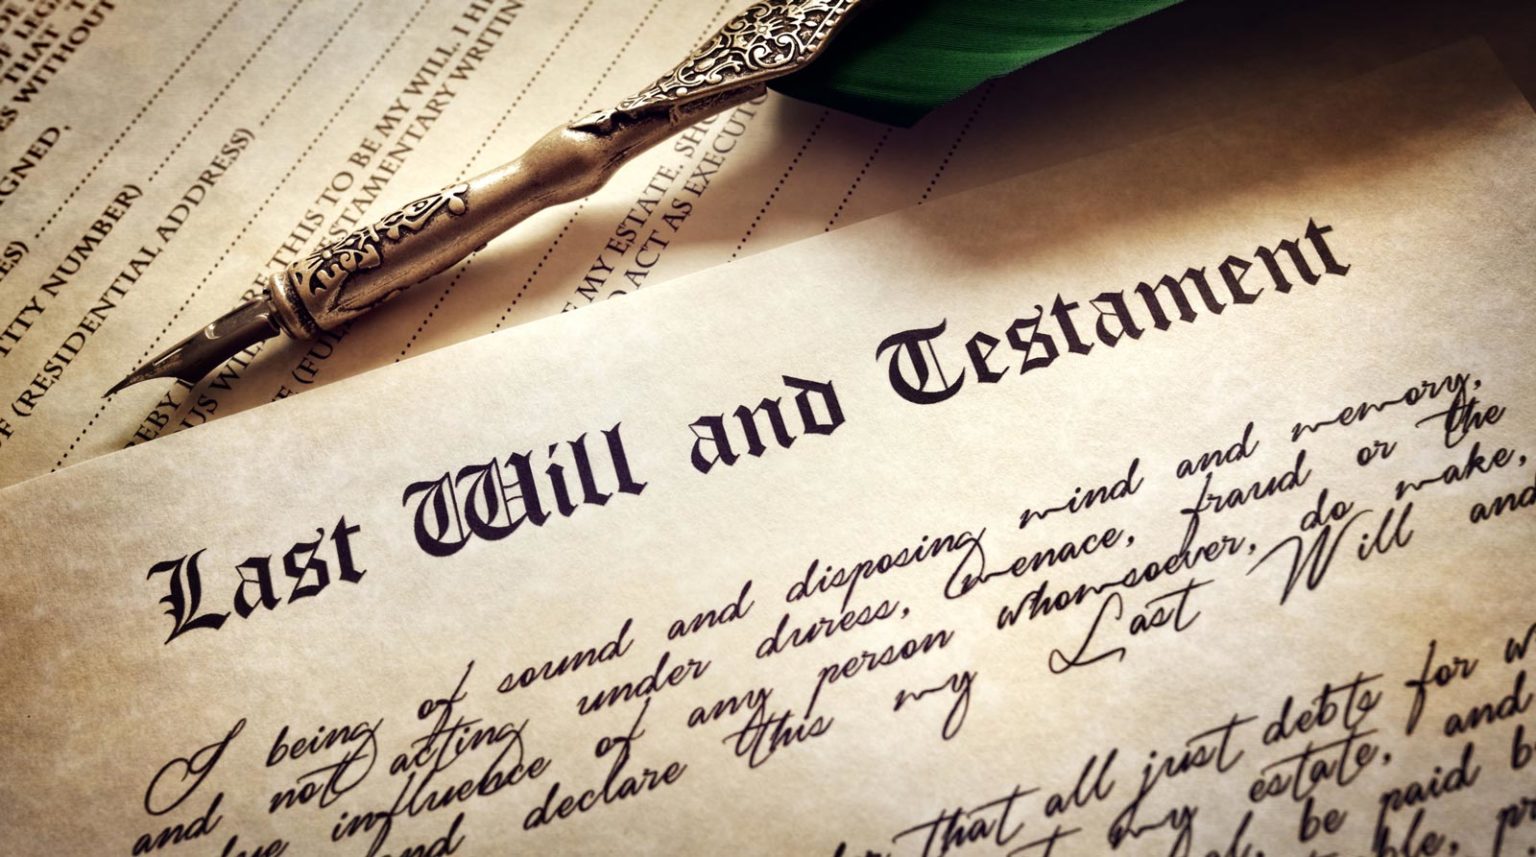 F LEGA
THAT T
S WITHOUT
GNED.
ES)
TITY NUMBER)
F (RESIDENTIAL ADDRESS)
EBY
US WILL
RE THIS TO BE MY WILL. I HE
STAMENTARY WRITIN
OF (FUL
F MY ESTATE. SHO
O ACT AS EXECUTO
Last Will and Testament
I being of sound and disposing mind and memory,
and not acting under duress, menace, fraud or the
influence of any person whomsoever, do make,
and declare this my Last Will and
that all just debts for w
my estate, and
be paid b
ble, pr